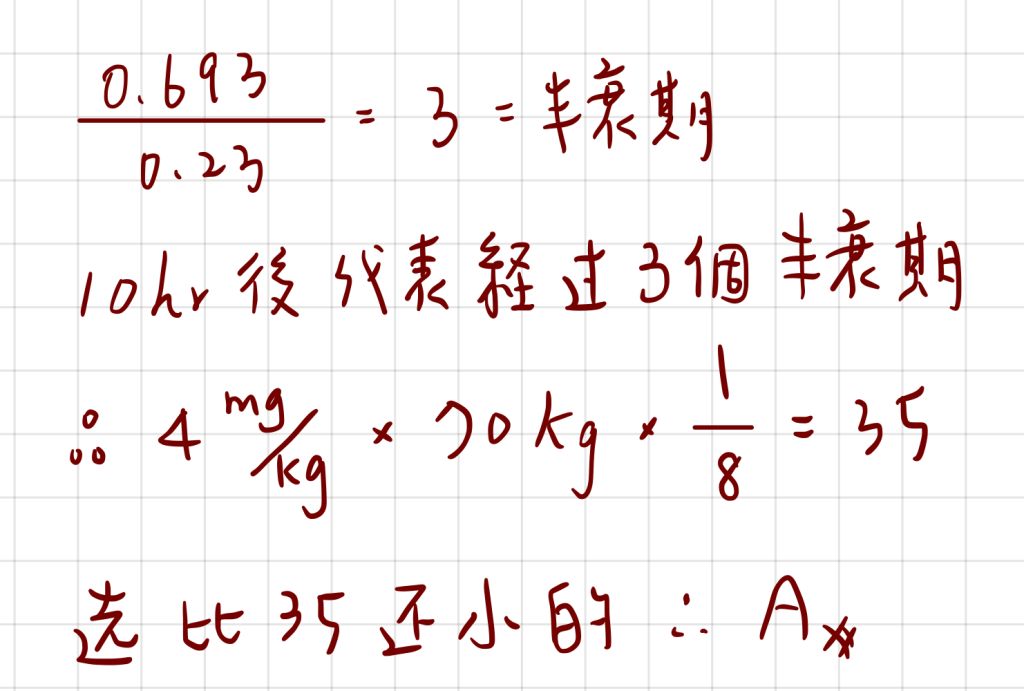 0.693/0.23 = 3 = 半衰期
10hr 後代表経过3個半衰期
∴ 4 mg/kg × 70kg × 1/8 = 35
选比35还小的 ∴ A※